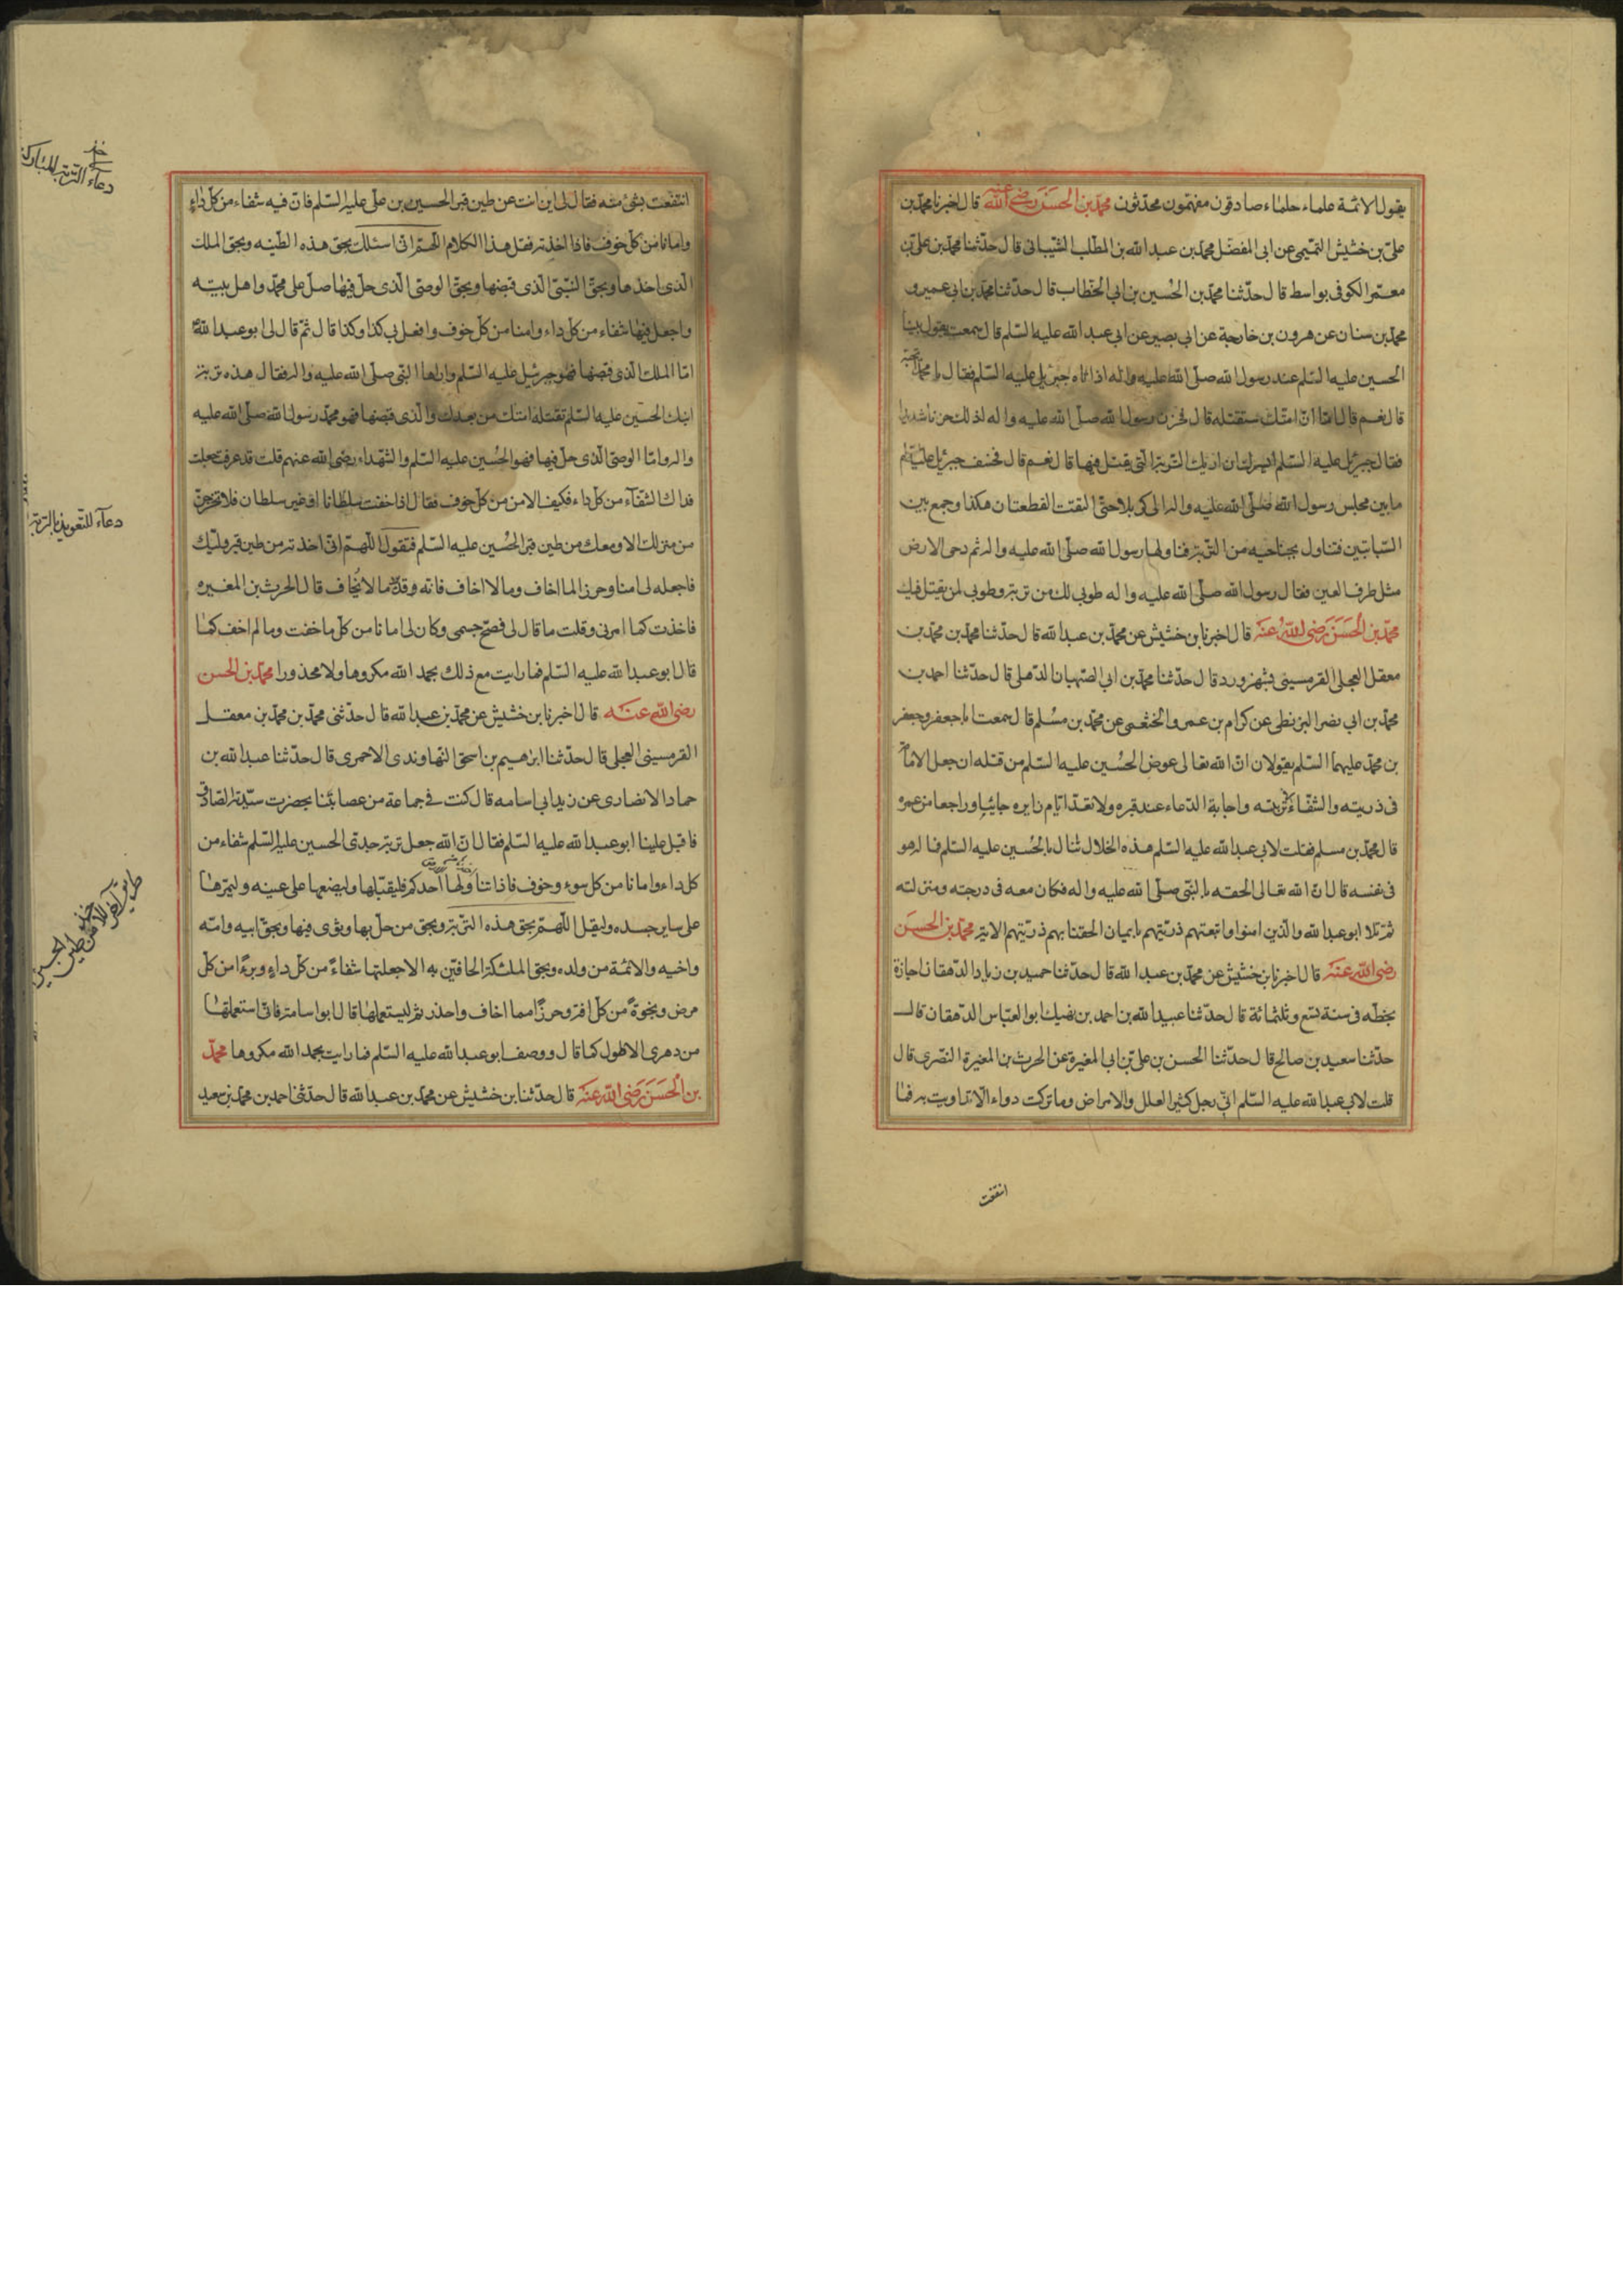 يقول الائمة علماء حلماء صادقون مفهمون محدثون محمد بن الحسن رضي الله عنه قال اخبرنا محمد بن
علي بن خشيش التميمي عن ابي المفضل محمد بن عبد الله بن المطلب الشيباني قال حدثنا محمد بن علي بن
معمر الكوفي بواسط قال حدثنا محمد بن الحسين بن ابي الخطاب قال حدثنا محمد بن ابي عمير و
محمد بن سنان عن هرون بن خارجة عن ابي بصير عن ابي عبد الله عليه السلم قال سمعته يقول بينا
الحسين عليه السلم عند رسول الله صلى الله عليه واله اذ اتاه جبرئيل عليه السلم فقال يا محمد اتحبه
قال نعم قال اما ان امتك ستقتله قال فحزن رسول الله صلى الله عليه واله لذلك حزنا شديدا
فقال جبرئيل عليه السلم ايسرك ان اريك التربة التي يقتل فيها قال نعم قال فخسف جبرئيل عليه السلم
ما بين مجلس رسول الله صلى الله عليه واله الى كربلا حتى التقت القطعتان هكذا وجمع بين
السبابتين فتناول بجناحيه من التربة فناولها رسول الله صلى الله عليه واله ثم دحى الارض
مثل طرف العين فقال رسول الله صلى الله عليه واله طوبى لك من تربة وطوبى لمن يقتل فيك
محمد بن الحسن رضي الله عنه قال اخبرنا بن خشيش عن محمد بن عبد الله قال حدثنا محمد بن محمد بن
معقل العجلي القرمسيني بشهرزورد قال حدثنا محمد بن ابي الصهبان الذهلي قال حدثنا احمد بن
محمد بن ابي نصر البزنطي عن كرام بن عمرو الخثعمي عن محمد بن مسلم قال سمعت ابا جعفر وجعفر
بن محمد عليهما السلم يقولان ان الله تعالى عوض الحسين عليه السلم من قتله ان جعل الامامة
في ذريته والشفاء في تربته واجابة الدعاء عند قبره ولا تعد ايام زايره جائيا وراجعا من عمره
قال محمد بن مسلم فقلت لابي عبد الله عليه السلم هذه الخلال تنال بالحسين عليه السلم فما له هو
في نفسه قال ان الله تعالى الحقه بالنبي صلى الله عليه واله فكان معه في درجته ومنزلته
ثم تلا ابو عبد الله والذين امنوا واتبعتهم ذريتهم بايمان الحقنا بهم ذريتهم الاية محمد بن الحسن
رضي الله عنه قال اخبرنا بن خشيش عن محمد بن عبد الله قال حدثنا حميد بن زياد الدهقان اجازة
بخطه في سنة تسع وثلثمائة قال حدثنا عبيد الله بن احمد بن نهيك ابو العباس الدهقان قال
حدثنا سعيد بن صالح قال حدثنا الحسن بن علي بن ابي المغيرة عن الحرث بن المغيرة النصري قال
قلت لابي عبد الله عليه السلم اني رجل كثير العلل والامراض وما تركت دواء الا تداويت به فما
انتفعت
انتفعت بشئ منه فقال لي اين انت عن طين قبر الحسين بن علي عليه السلم فان فيه شفاء من كل داء
وامانا من كل خوف فاذا اخذته فقل هذا الكلام اللهم اني اسئلك بحق هذه الطينه وبحق الملك
الذي اخذها وبحق النبي الذي قبضها وبحق الوصي الذي حل فيها صل على محمد واهل بيته
واجعل فيها شفاء من كل داء وامنا من كل خوف وافعل بي كذا وكذا قال ثم قال لي ابو عبد الله
اما الملك الذي قبضها فهو جبرئيل عليه السلم وراها النبي صلى الله عليه واله فقال هذه تربة
ابنك الحسين عليه السلم تقتله امتك من بعدك والذي قبضها فهو محمد رسول الله صلى الله عليه
واله واما الوصي الذي حل فيها فهو الحسين عليه السلم والشهداء رضي الله عنهم قلت قد عرفت جعلت
فداك الشفاء من كل داء فكيف الامن من كل خوف فقال اذا خفت سلطانا او غير سلطان فلا تخرجن
من منزلك الا ومعك من طين قبر الحسين عليه السلم فتقول اللهم اني اخذته من طين قبر وليك
فاجعله لي امنا وحرزا لما اخاف وما لا اخاف فانه وقد ما لا يخاف قال الحرث بن المغيره
فاخذت كما امرني وقلت ما قال لي فصح جسمي وكان لي امانا من كل ما خفت وما لم اخف كما
قال ابو عبد الله عليه السلم فما رايت مع ذلك بحمد الله مكروها ولا محذورا محمد بن الحسن
رضي الله عنه قال اخبرنا بن خشيش عن محمد بن عبد الله قال حدثني محمد بن محمد بن معقل
القرمسيني العجلي قال حدثنا ابرهيم بن اسحق النهاوندي الاحمري قال حدثنا عبد الله بن
حماد الانصاري عن زيد ابي اسامه قال كنت في جماعة من عصابتنا بحضرت سيدنا الصادق
فاقبل علينا ابو عبد الله عليه السلم فقال ان الله جعل تربة جدي الحسين عليه السلم شفاء من
كل داء وامانا من كل سوء وخوف فاذا تناولها احدكم فليقبلها وليضعها على عينه وليمرها
على ساير جسده وليقل اللهم بحق هذه التربة وبحق من حل بها وثوى فيها وبحق ابيه وامه
واخيه والائمة من ولده وبحق الملئكة الحافين به الا جعلتها شفاء من كل داء وبرءا من كل
مرض ونجوة من كل افة وحرزا مما اخاف واحذر ثم ليستعملها قال ابو اسامة فاني استعملتها
من دهري الاطول كما قال ووصف ابو عبد الله عليه السلم فما رايت بحمد الله مكروها محمد
بن الحسن رضي الله عنه قال حدثنا بن خشيش عن محمد بن عبد الله قال حدثنا احمد بن محمد بن سعيد
دعاء التربة المباركة
دعاء للتعويذ بالتربة